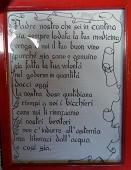 Padre nostro che sei in cantina
sia sempre lodata la tua medicina
venga a noi il tuo buon vino
purché sia sano e genuino
sia fatta la tua volontà
nel goderne in quantità
Dacci oggi
la nostra dose quotidiana
e riempi a noi i bicchieri
come noi li riempiamo
ai nostri bevitori
e non c'indurre all'astemia
ma liberaci dall'acqua
e così sia.